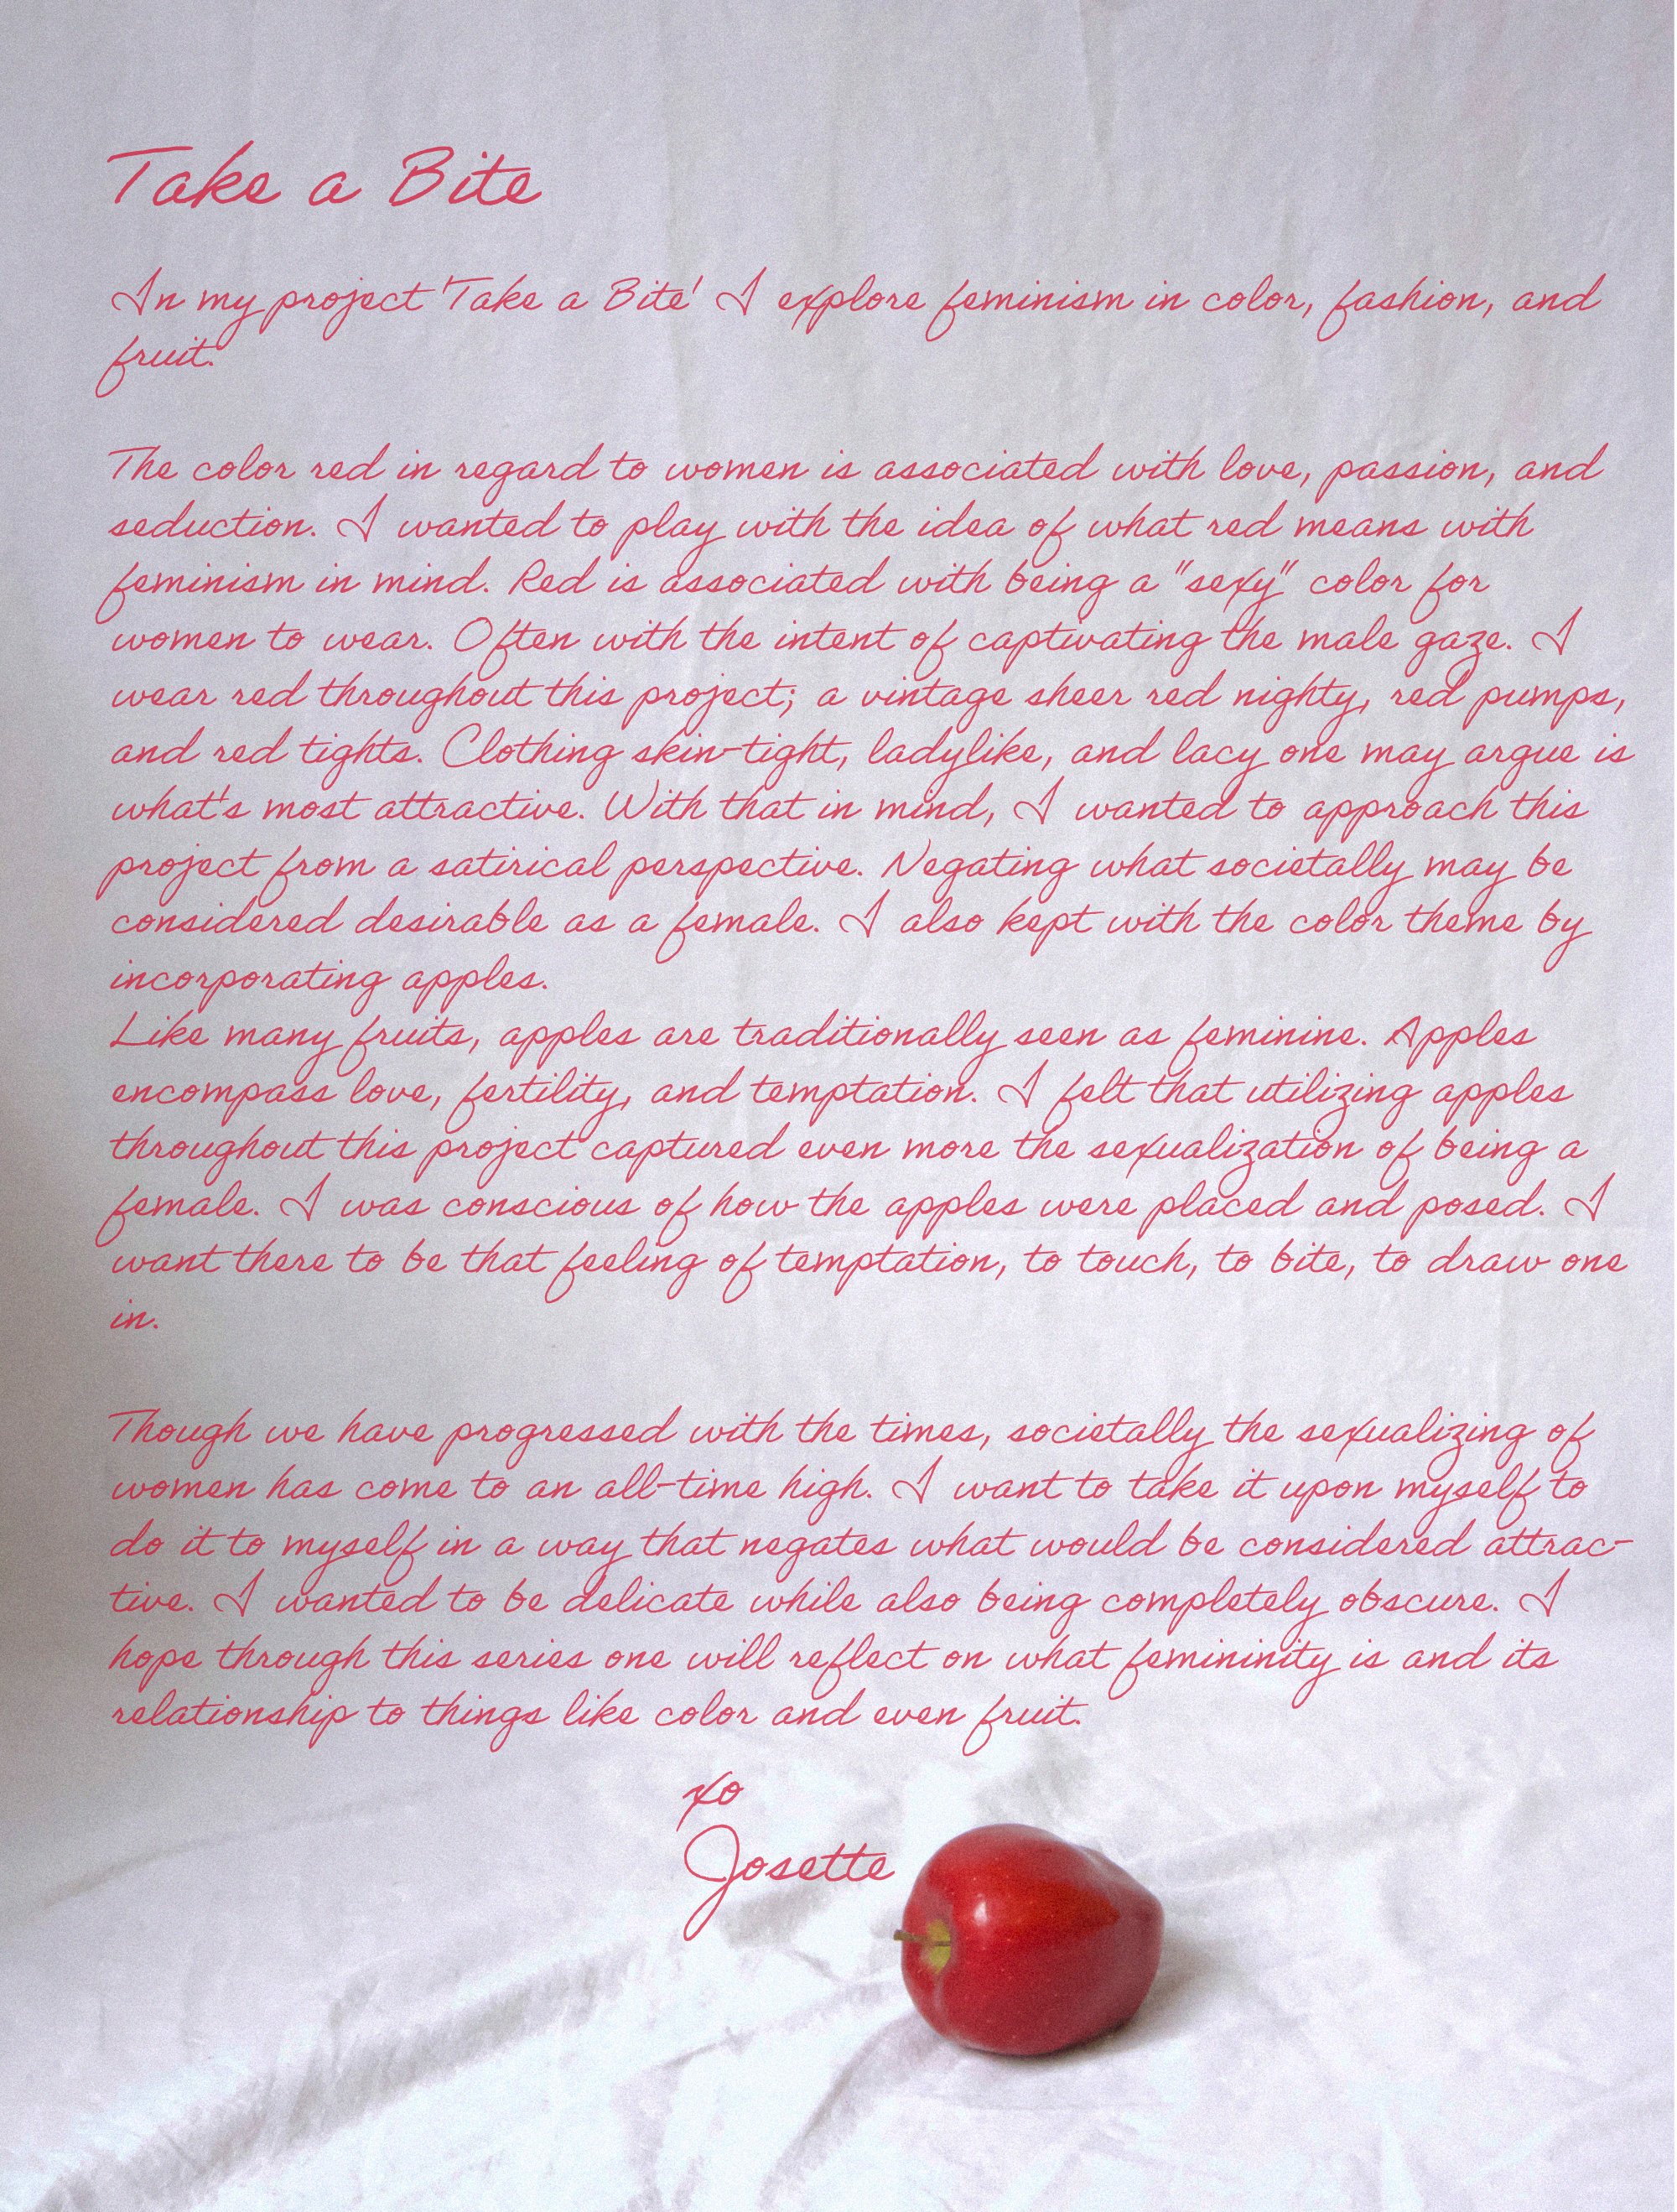 Take a Bite
In my project 'Take a Bite' I explore feminism in color, fashion, and
fruit.
The color red in regard to women is associated with love, passion, and
seduction. I wanted to play with the idea of what red means with
feminism in mind. Red is associated with being a "sexy" color for
women to wear. Often with the intent of captivating the male gaze. I
wear red throughout this project; a vintage sheer red nighty, red pumps,
and red tights. Clothing skin-tight, ladylike, and lacy one may argue is
what's most attractive. With that in mind, I wanted to approach this
project from a satirical perspective. Negating what societally may be
considered desirable as a female. I also kept with the color theme by
incorporating apples.
Like many fruits, apples are traditionally seen as feminine. Apples
encompass love, fertility, and temptation. I felt that utilizing apples
throughout this project captured even more the sexualization of being a
female. I was conscious of how the apples were placed and posed. I
want there to be that feeling of temptation, to touch, to bite, to draw one
in.
Though we have progressed with the times, societally the sexualizing of
women has come to an all-time high. I want to take it upon myself to
do it to myself in a way that negates what would be considered attrac-
tive. I wanted to be delicate while also being completely obscure. I
hope through this series one will reflect on what femininity is and its
relationship to things like color and even fruit.
xo
Josette